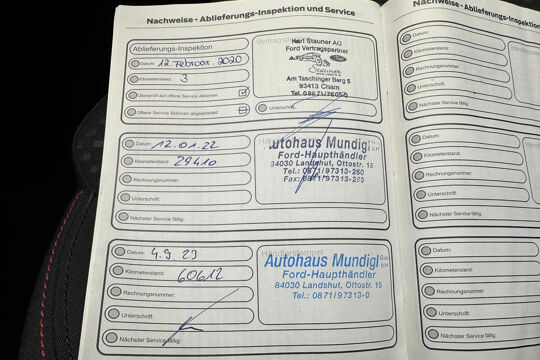 Nachweise - Ablieferungs-Inspektion und Service
Ablieferungs-Inspektion
Datum: 12. Februar. 2020
Kilometerstand: 3
Überprüft auf offene Service Aktionen
Offene Service Aktionen abgearbeitet
Karl Stauner AG
Ford Vertragspartner
Stauner
Am Taschinger Berg 5
93413 Cham
Unterschrift:
Datum: 12.01.22
Kilometerstand: 29410
Rechnungsnummer:
Unterschrift:
Nächster Service fällig:
Autohaus Mundigl
Ford-Haupthändler
84030 Landshut, Ottostr. 15
Tel.: 0871/97313-260
Fax: 0871/97313-263
Datum: 4.9 23
Kilometerstand: 60612
Rechnungsnummer:
Unterschrift:
Nächster Service fällig:
Händlerstempel
Autohaus Mundigl GmbH
Ford-Haupthändler
84030 Landshut, Ottostr. 15
Tel.: 0871/97313-0
Nachweise - Ablieferungs-Inspektion
Datum:
Kilometerstand:
Rechnungsnummer:
Unterschrift:
Nächster Service fällig:
Datum:
Kilometerstand:
Rechnungsnummer:
Unterschrift:
Nächster Service fällig:
Datum:
Kilometerstand:
Rechnungsnummer:
Unterschrift:
Nächster Service fällig: